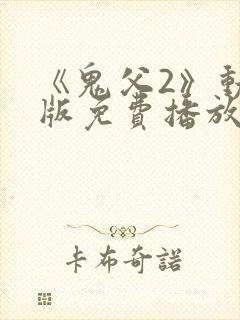 《鬼父2》動
版免費播放
卡布奇諾